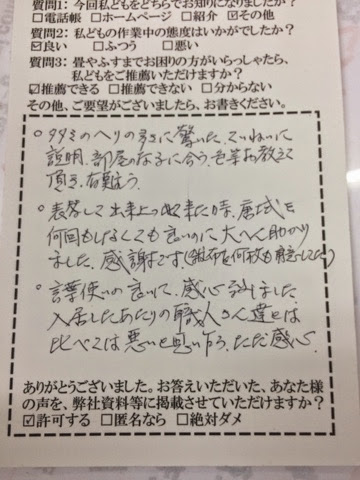 質問1：今回私どもをどちらでお知りになりましたか？
□電話帳 □ホームページ □紹介 ☑その他
質問2：私どもの作業中の態度はいかがでしたか？
☑良い □ふつう □悪い
質問3：畳やふすまでお困りの方がいらっしゃたら、
私どもをご推薦いただけますか？
☑推薦できる □推薦できない □分からない
その他、ご要望がございましたら、お書きください。
○タタミのヘリの多さに驚いた、ていねいに
説明、部屋の様子に合う、色等お教えて
頂き、有難う。
○表装して出来上って来た時、
何回もしなくても良いのに大へん助かり
ました。感謝です
○言葉使いの良いに、感心致しました
入居したあたりの職人さん達とは
比べては悪いと思い乍ら、ただ感心
ありがとうございました。お答えいただいた、あなた様
の声を、弊社資料等に掲載させていただけますか？
☑許可する □匿名なら □絶対ダメ